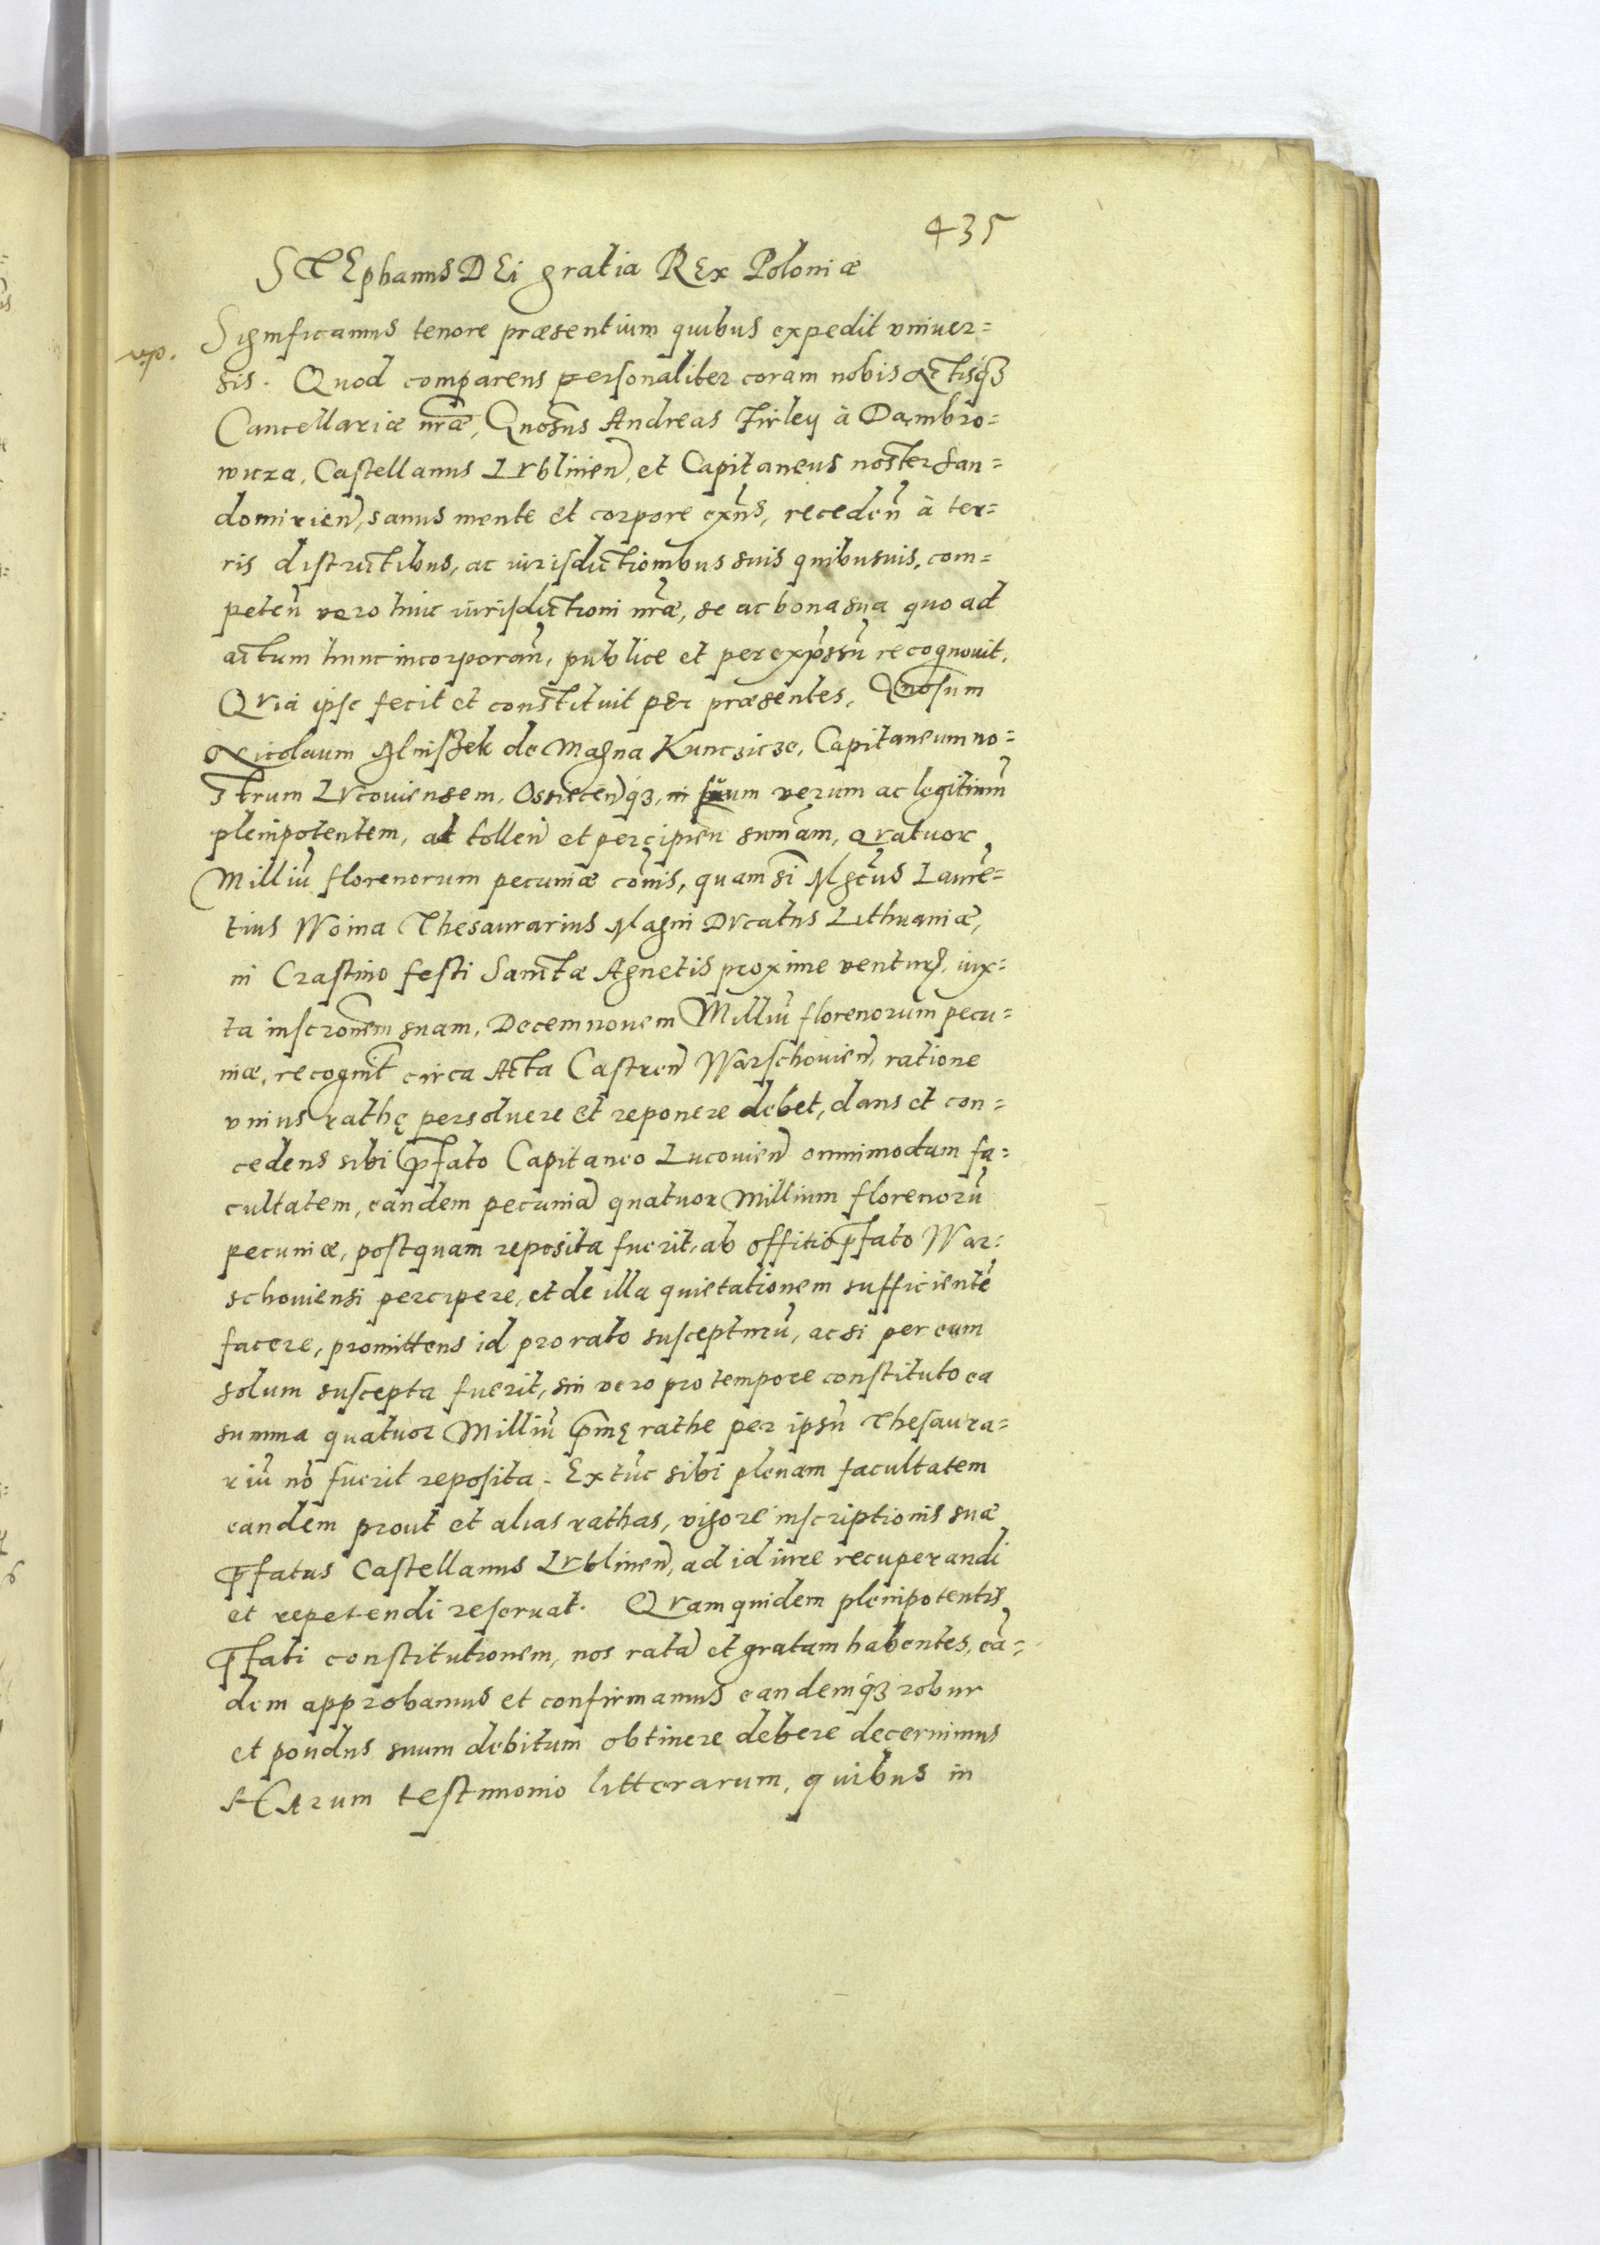 435
STEphanus DEi gratia REx Poloniæ
Significamus tenore præsentium quibus expedit vniuer=
sis. Quod comparens personaliter coram nobis Actisq́ꝫ
Cancellariæ nr̃æ, Gnosus Andreas Firley à Dąmbro=
wicza, Castellanus LVblinen̄, et Capitaneus noster San=
domirien̄, sanus mente et corpore exñs, receden̄ à ter=
ris districtibus, ac iurisdictionibus suis quibusuis, com=
peten̄ vero huic iurisdictioni nr̃æ, se ac bona sua quo ad
actum hunc incorporan̄, publice et per expr̃ssũ recognouit,
QVia ipse fecit et constituit per præsentes, Gnosum
Nicolaum Mniszek de Magna Kunczicze, Capitaneum no=
strum LVcouiensem, Osniecen̄q́ꝫ, in suum verum ac legitimũ
plenipotentem, ad tollen̄ et percipien̄ sum̃am, qVatuor
Milliũ florenorum pecuniæ com̃is, quam si Mgcũs Laurẽ=
tius Woina Thesaurarius Magni DVcatus Lithuaniæ,
in Crastino festi Sanctæ Agnetis proxime ventur̃, iux=
ta inscrōnem suam, Decem nouem Milliũ florenorum pecu=
niæ, recognit̃ circa Acta Castren̄ Warschouien̄, ratione
vnius rathę persoluere et reponere debet, dans et con=
cedens sibi p̄fato Capitaneo Lucouien̄ omnimodam fa=
cultatem, eandem pecuniã quatuor Millium florenorũ
pecuniæ, postquam reposita fuerit, ab offitio p̄fato War=
schouiensi percipere, et de illa quietationem sufficientẽ
facere, promittens id pro rato suscepturũ, ac si per eum
solum suscepta fuerit, sin vero pro tempore constituto ea
summa quatuor Milliũ p̄mę rathe per ipsũ Thesaura=
riũ nõ fuerit reposita. Extũc sibi plenam facultatem
eandem prout et alias rathas, vigore inscriptionis suæ
p̄fatus Castellanus LVblinen̄, ad id iure recuperandi
et repetendi reseruat. QVam quidem plenipotentis
p̄fati constitutionem, nos ratã et gratam habentes, eã=
dem approbamus et confirmamus eandemq́ꝫ robur
et pondus suum debitum obtinere debere decernimus
HARum testimonio litterarum, quibus in